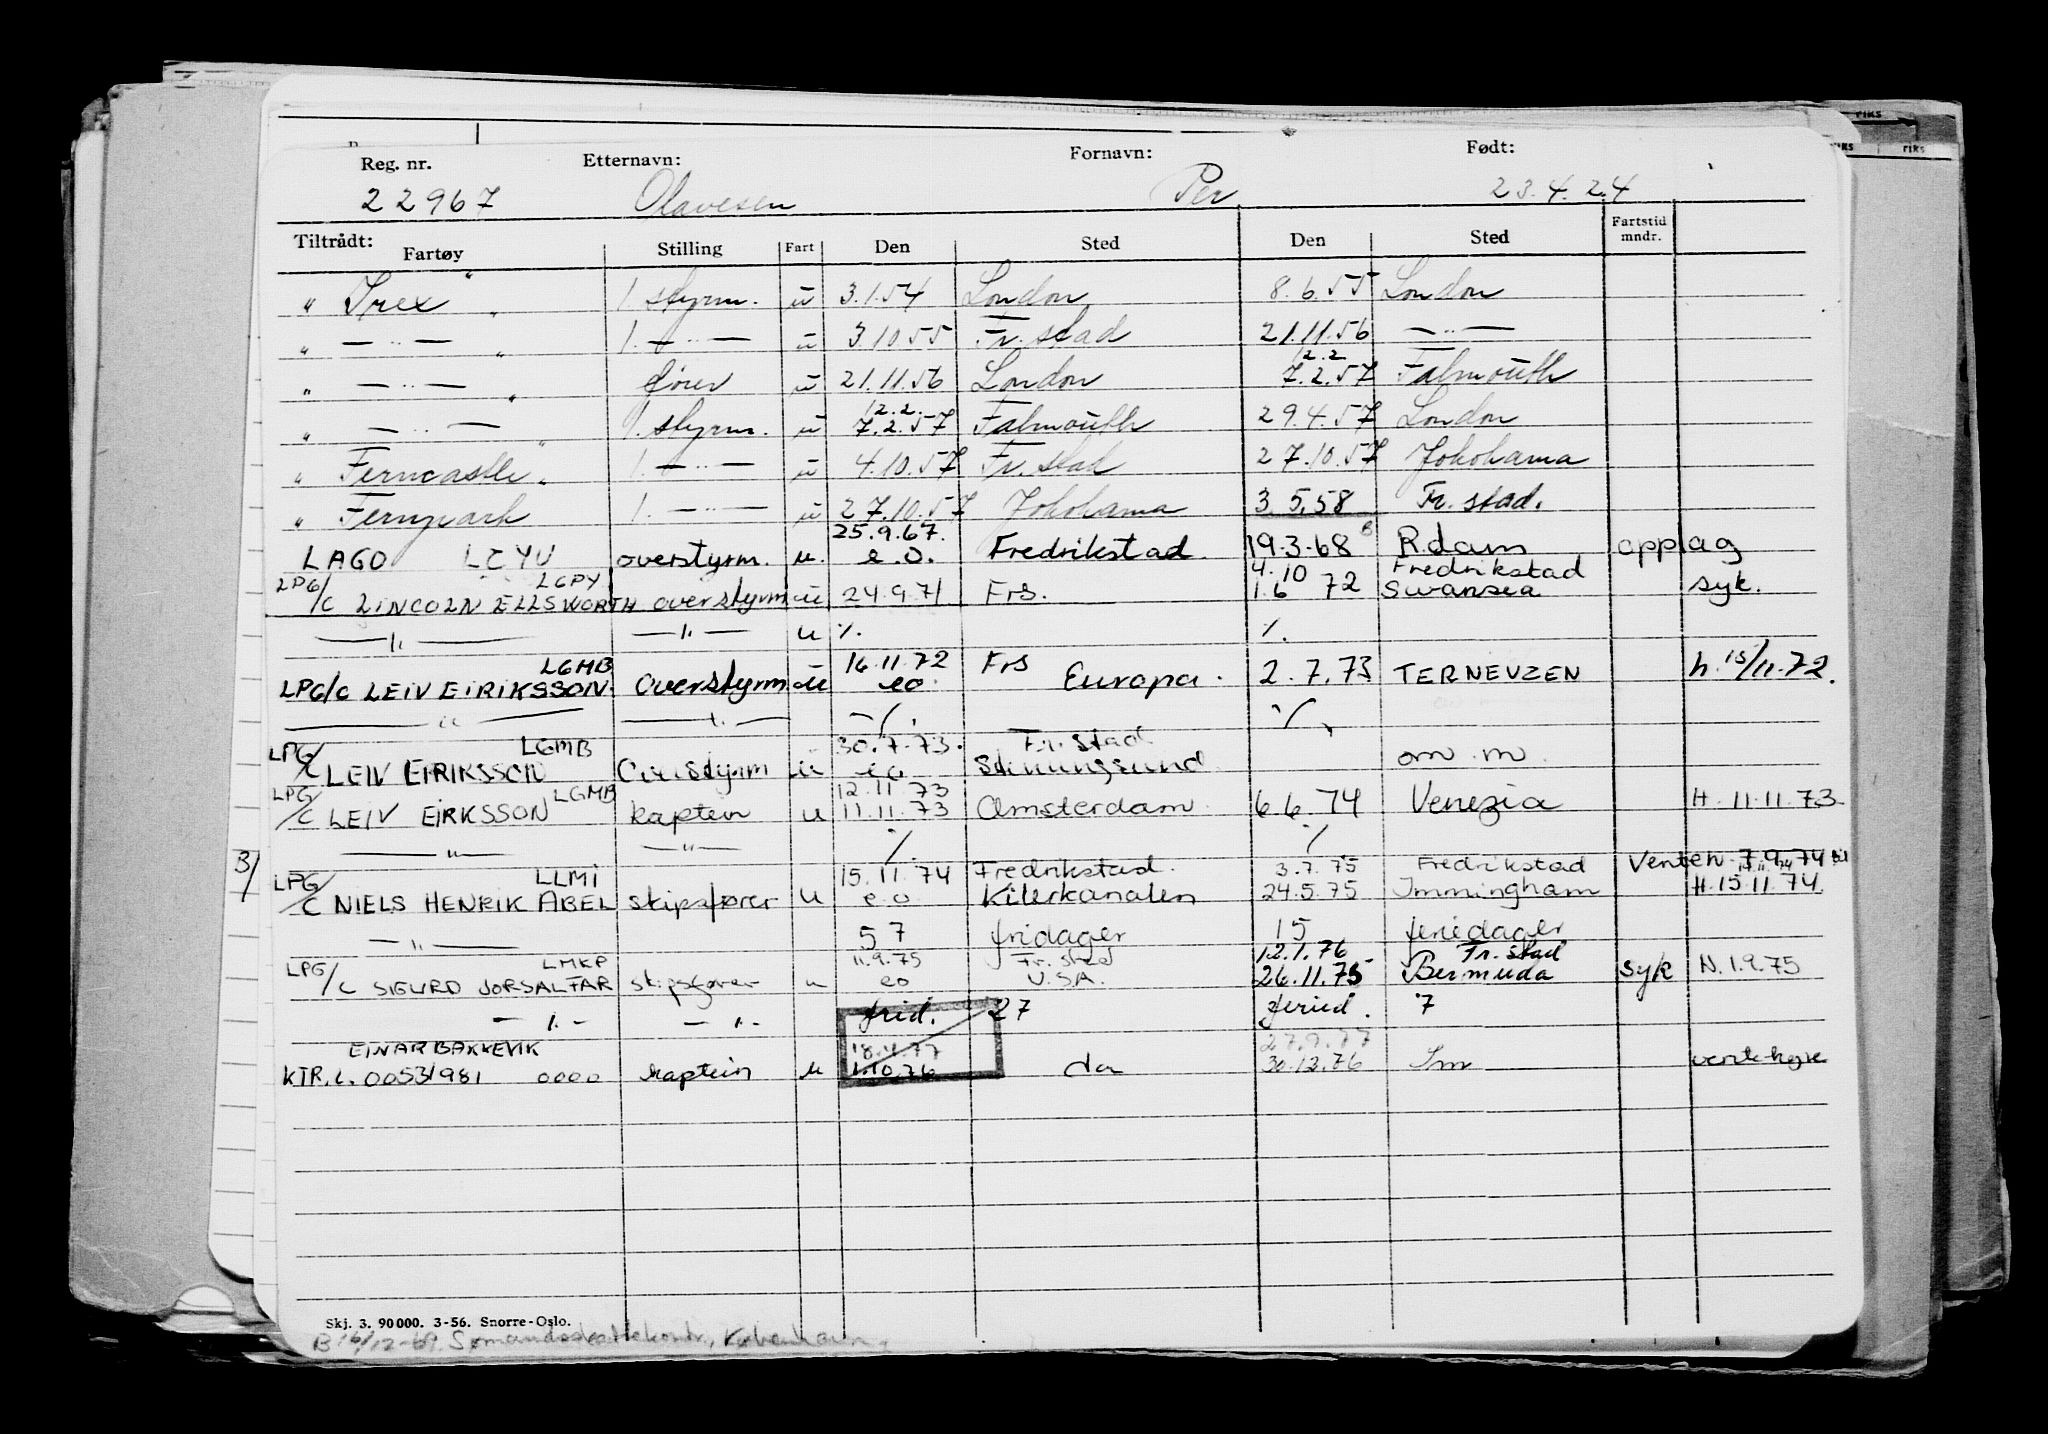 Reg. nr. Etternavn: Fornavn: Født:
22967 Olavesen Per 23.4.24
Tiltrådt: Fartøy Stilling Fart Den Sted Den Sted Fartstid mndr.
" Irex " 1. styrm. u 3.1.54 London 8.6.55 London
" — " — " 1. — " — u 3.10.55 Fr.stad 21.11.56 — " —
" — " — " fører u 21.11.56 London 12.2. 7.2.57 Falmouth
" — " — " 1. styrm. u 12.2. 7.2.57 Falmouth 29.4.57 London
" Ferncastle " 1. — " — u 4.10.57 Fr.stad 27.10.57 Jokohama
" Fernpark 1. — " — u 27.10.57 Jokohama 3.5.58 Fr.stad.
25.9.67.
LAGO LCYU overstyrm. u. e.o. Fredrikstad. 19.3.68 R.dam opplag
LGPY 4.10 Fredrikstad
LPG/C LINCOLN ELLSWORTH overstyrm u 24.9.71 Frs. 1.6 72 Swansea syk.
— " — — " — u % %
LGMB 16.11.72 Frs
LPG/C LEIV EIRIKSSON. Overstyrm u eo. Europa. 2.7.73 TERNEUZEN h.15/11.72.
— " — — " — % %
LGMB 30.7.73. Fr.stad
LPG/C LEIV EIRIKSSON Overstyrm u eo Stenungsund om.m.
LGMB 12.11.73
LPG/C LEIV EIRKSSON kaptein u 11.11.73 Amsterdam. 6.6.74 Venezia H. 11.11.73
— " — — " — % %
B/ LLMI 15.11.74 Fredrikstad. 3.7.75 Fredrikstad Venteh. 7.9.74
LPG/C NIELS HENRIK ABEL skipsfører u e.o Kielerkanalen 24.5.75 Immingham H.15.11.74
— " — 57 fridager 15 feriedager
LMKP 11.9.75 Fr.stad 12.1.76 Fr.stad
LPG/C SIGURD JORSALFAR skipsfører u eo U.SA. 26.11.75 Bermuda syk N.1.9.75
— " — — " — frid. 27 feried. 7
EINAR BAKKEVIK 27.9.77
KTR.L. 0053/981 0000 kaptein u 1.10.76 da 30.12.76 Im ventehyre
Skj. 3. 90000. 3-56. Snorre-Oslo.
B 16/12-69. Sømandsskattekontr., København.